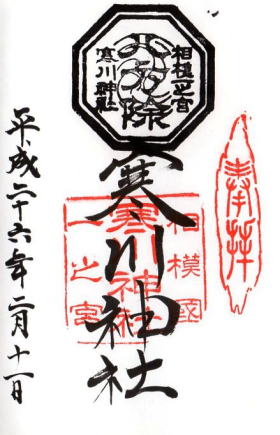 奉拝
相模國
一之宮
寒川神社
八方除
相模一之宮
寒川神社
寒川神社
平成二十六年二月十一日